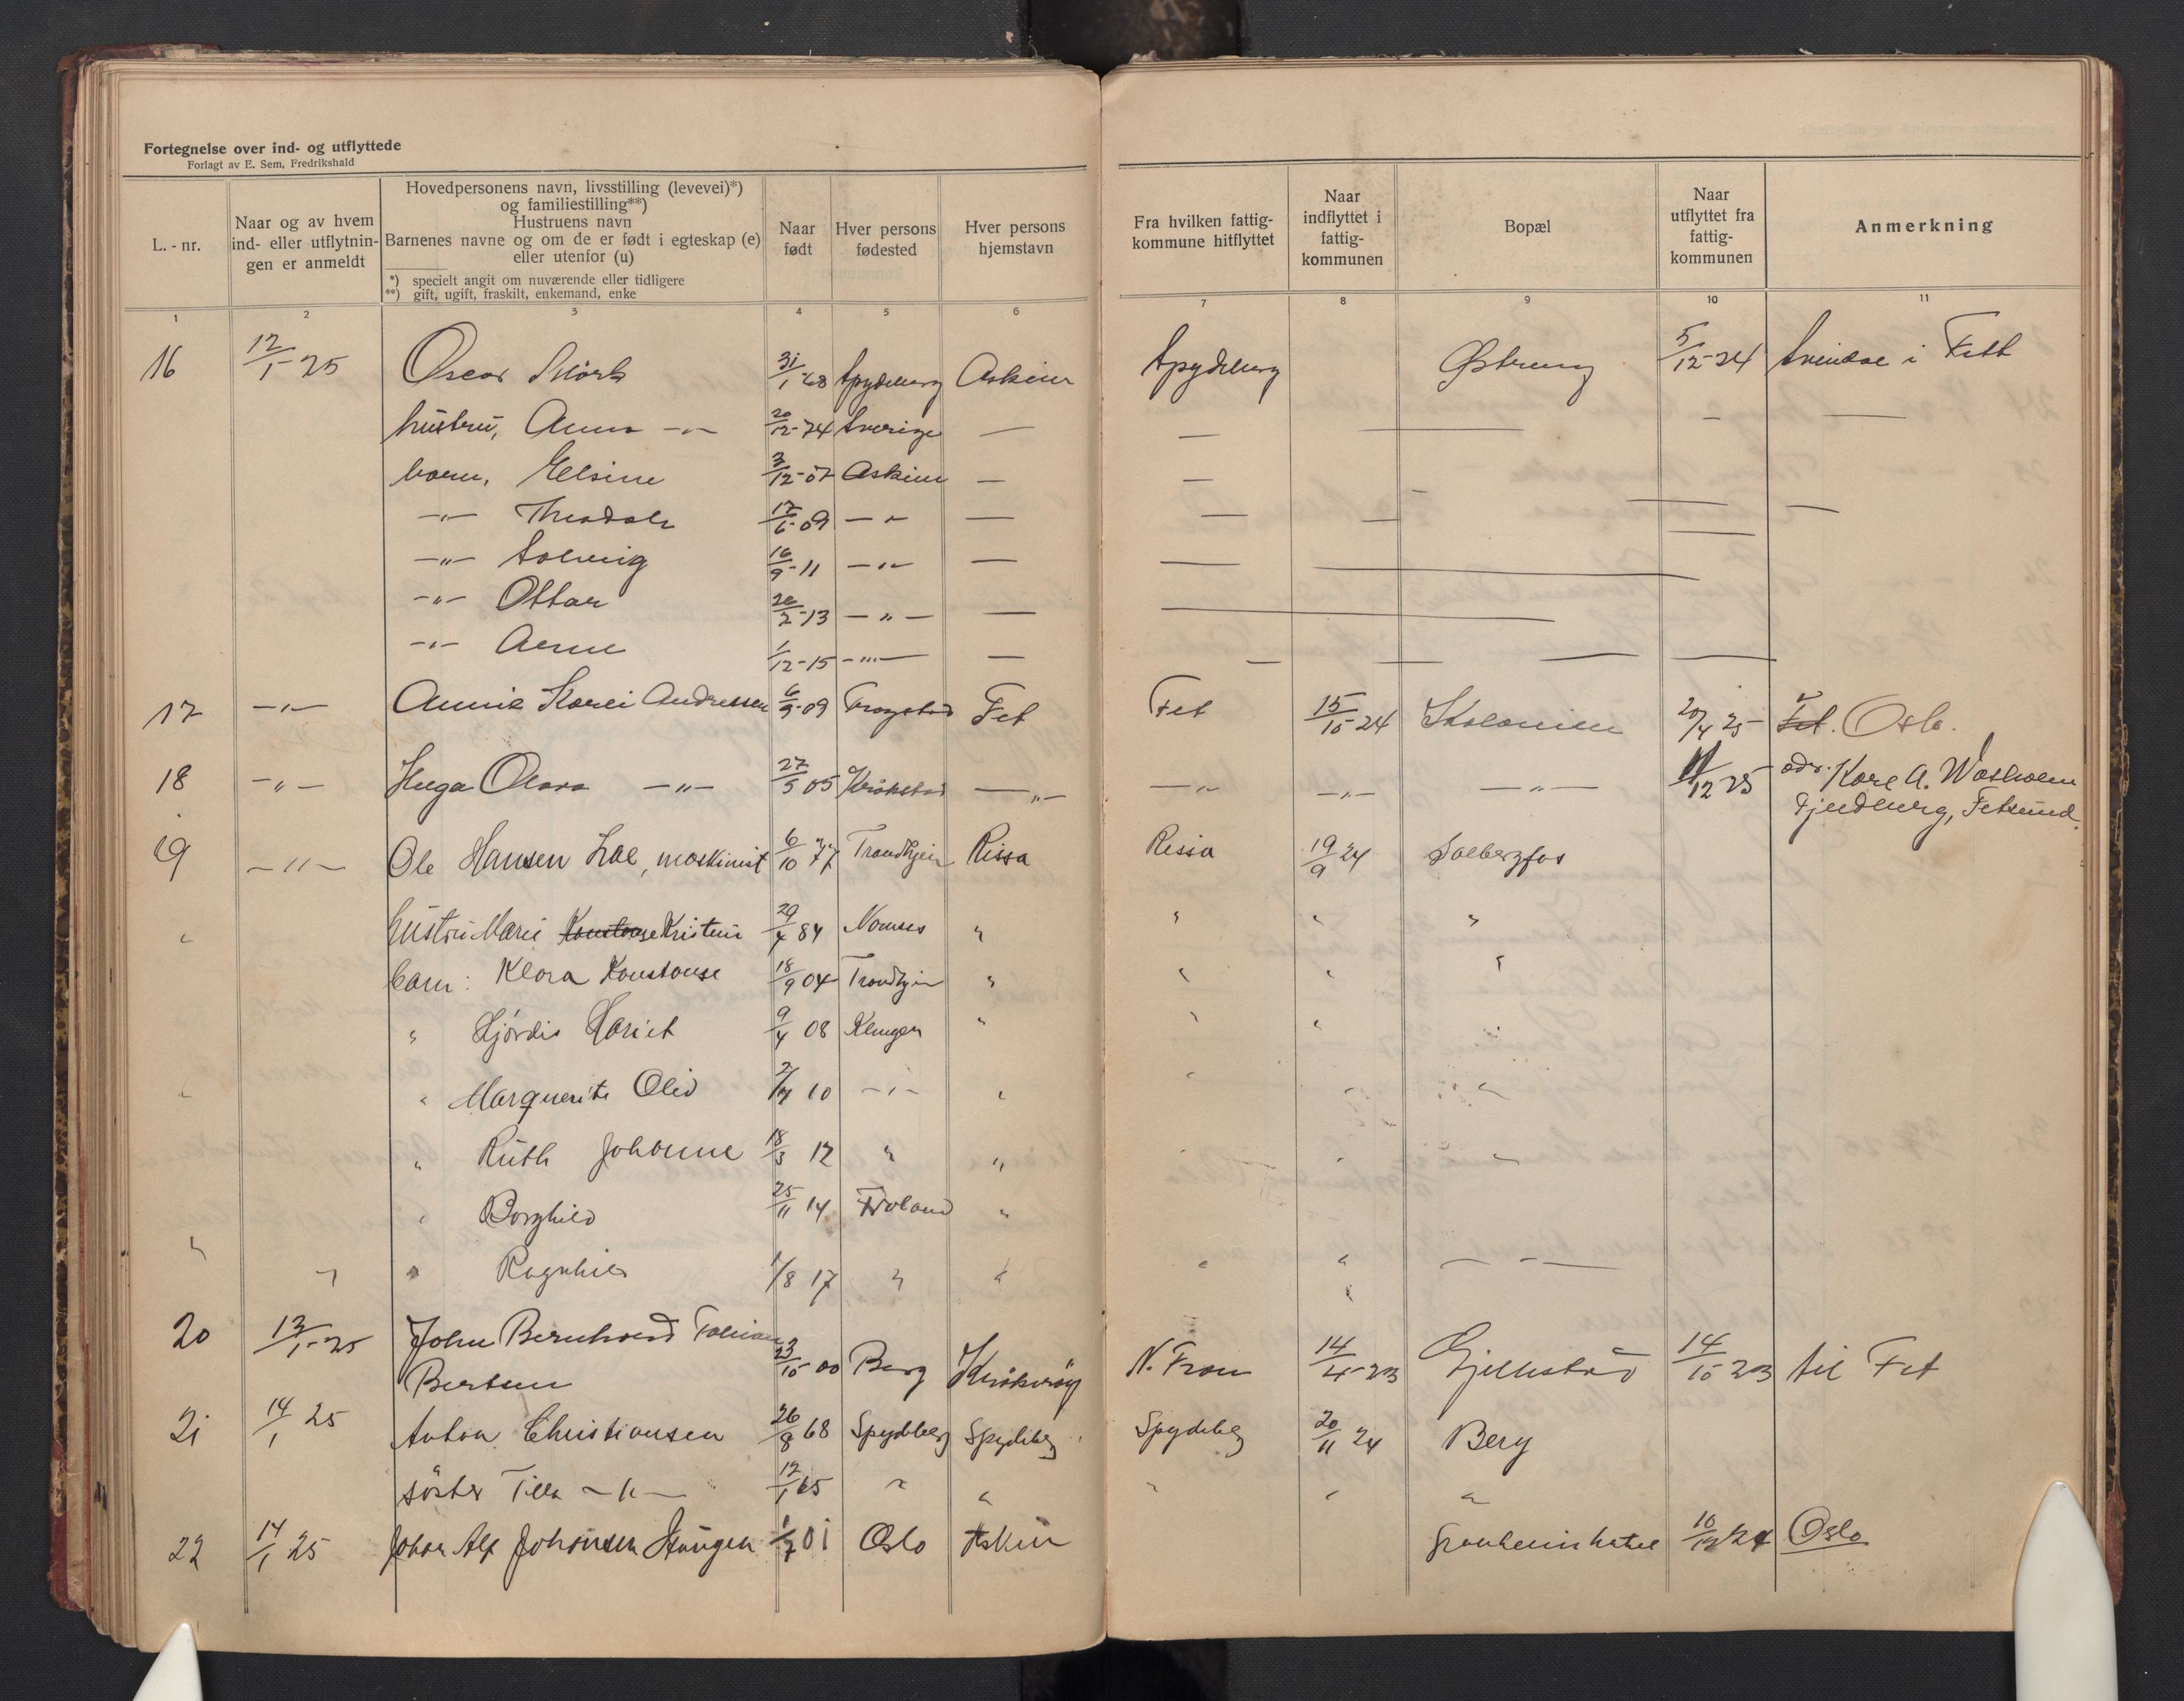 Fortegnelse over ind- og utflyttede
Forlagt av E. Sem, Fredrikshald
L. - nr.
Naar og av hvem
ind- eller utflytnin-
gen er anmeldt
Hovedpersonens navn, livsstilling (levevei)*)
og familiestilling**)
Hustruens navn
Barnenes navne og om de er født i egteskap (e)
eller utenfor (u)
*) specielt angit om nuværende eller tidligere
**) gift, ugift, fraskilt, enkemand, enke
Naar
født
Hver persons
fødested
Hver persons
hjemstavn
Fra hvilken fattig-
kommune hitflyttet
Naar
indflyttet i
fattig-
kommunen
Bopæl
Naar
utflyttet fra
fattig-
kommunen
Anmerkning
1 2 3 4 5 6 7 8 9 10 11
16 12/1-25 Oscar Mörk 31/1-68 Spydeberg Askim Spydeberg 5/12-24 i Fett
hustru, Anna -"- 20/12-74 Sverige —
barn, Elsine 3/12-07 Askim —
-"- 17/6-09 -"- —
-"- Solveig 16/9-11 -"- —
-"- Ottar 20/2-13 -"- —
-"- Arne 1/12-15 -"- —
17 -"- Annie Karei Andressen 6/9-09 Trøgstad Fet Fet 15/10 24 Kolonien 20/4 25 Fet. Oslo.
18 -"- Olava -"- 27/5 05 Kråkstad -"- -"- -"- -"- 11/12 25 adr. Kare A.
Fetsund.
19 -"- Ole Hansen Lae, maskinist 6/10 77 Trondhjem Rissa Rissa 19/9 24 Solbergfos
" hustru Marie Kristine 29/4 84 "
barn: Klara Konstanse 18/9 04 Trondhjem "
" Hjördis Hariet 9/4 08 "
" Marguerite Olid 2/7 10 -"- "
" Ruth Johanne 18/3 12 " "
" Borghild 25/11 14 Froland "
" Ragnhild 1/8 17 " "
20 13/1-25 John Bernhard
Bertsen 23/10-00 Berg Kråkeröy N. Fron 14/4-23 Gjellestad 14/10 23 til Fet
21 14/1 25 Anton Christiansen 26/8 68 Spydeberg Spydeberg Spydeberg 20/11 24 Berg
söster Tilla -"- 12/1 65 " " " " "
22 14/1 25 Johan Alf Johansen Haugen 1/7 01 Oslo Askim Granheim hotel 10/12 24 Oslo